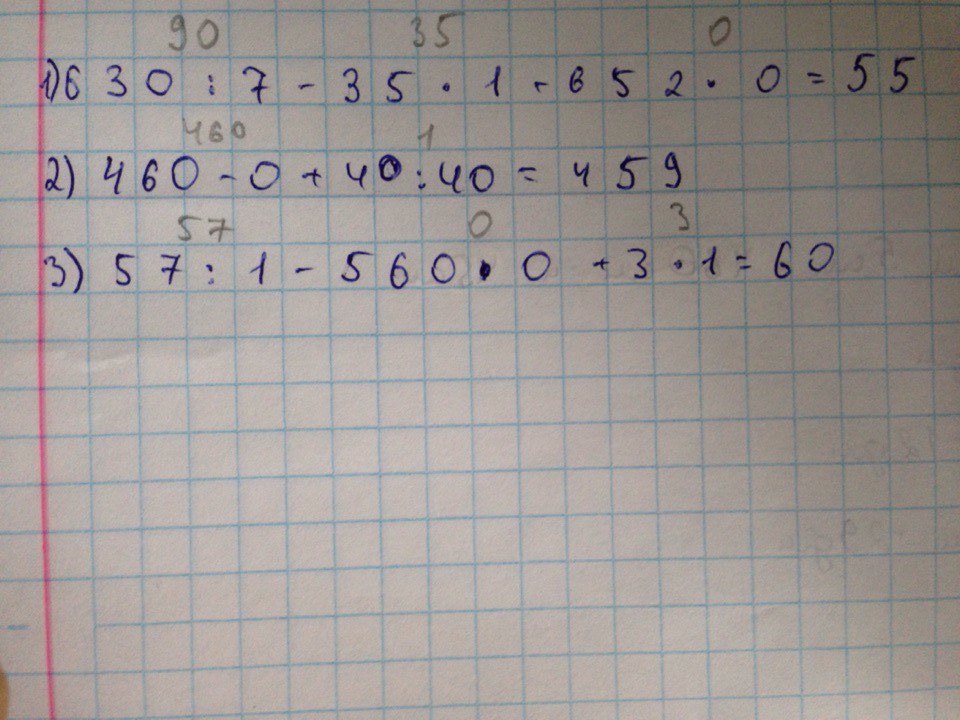 90 35 0
1) 630 : 7 - 35 · 1 - 652 · 0 = 55
460 1
2) 460 - 0 + 40 : 40 = 459
57 0 3
3) 57 : 1 - 560 · 0 + 3 · 1 = 60